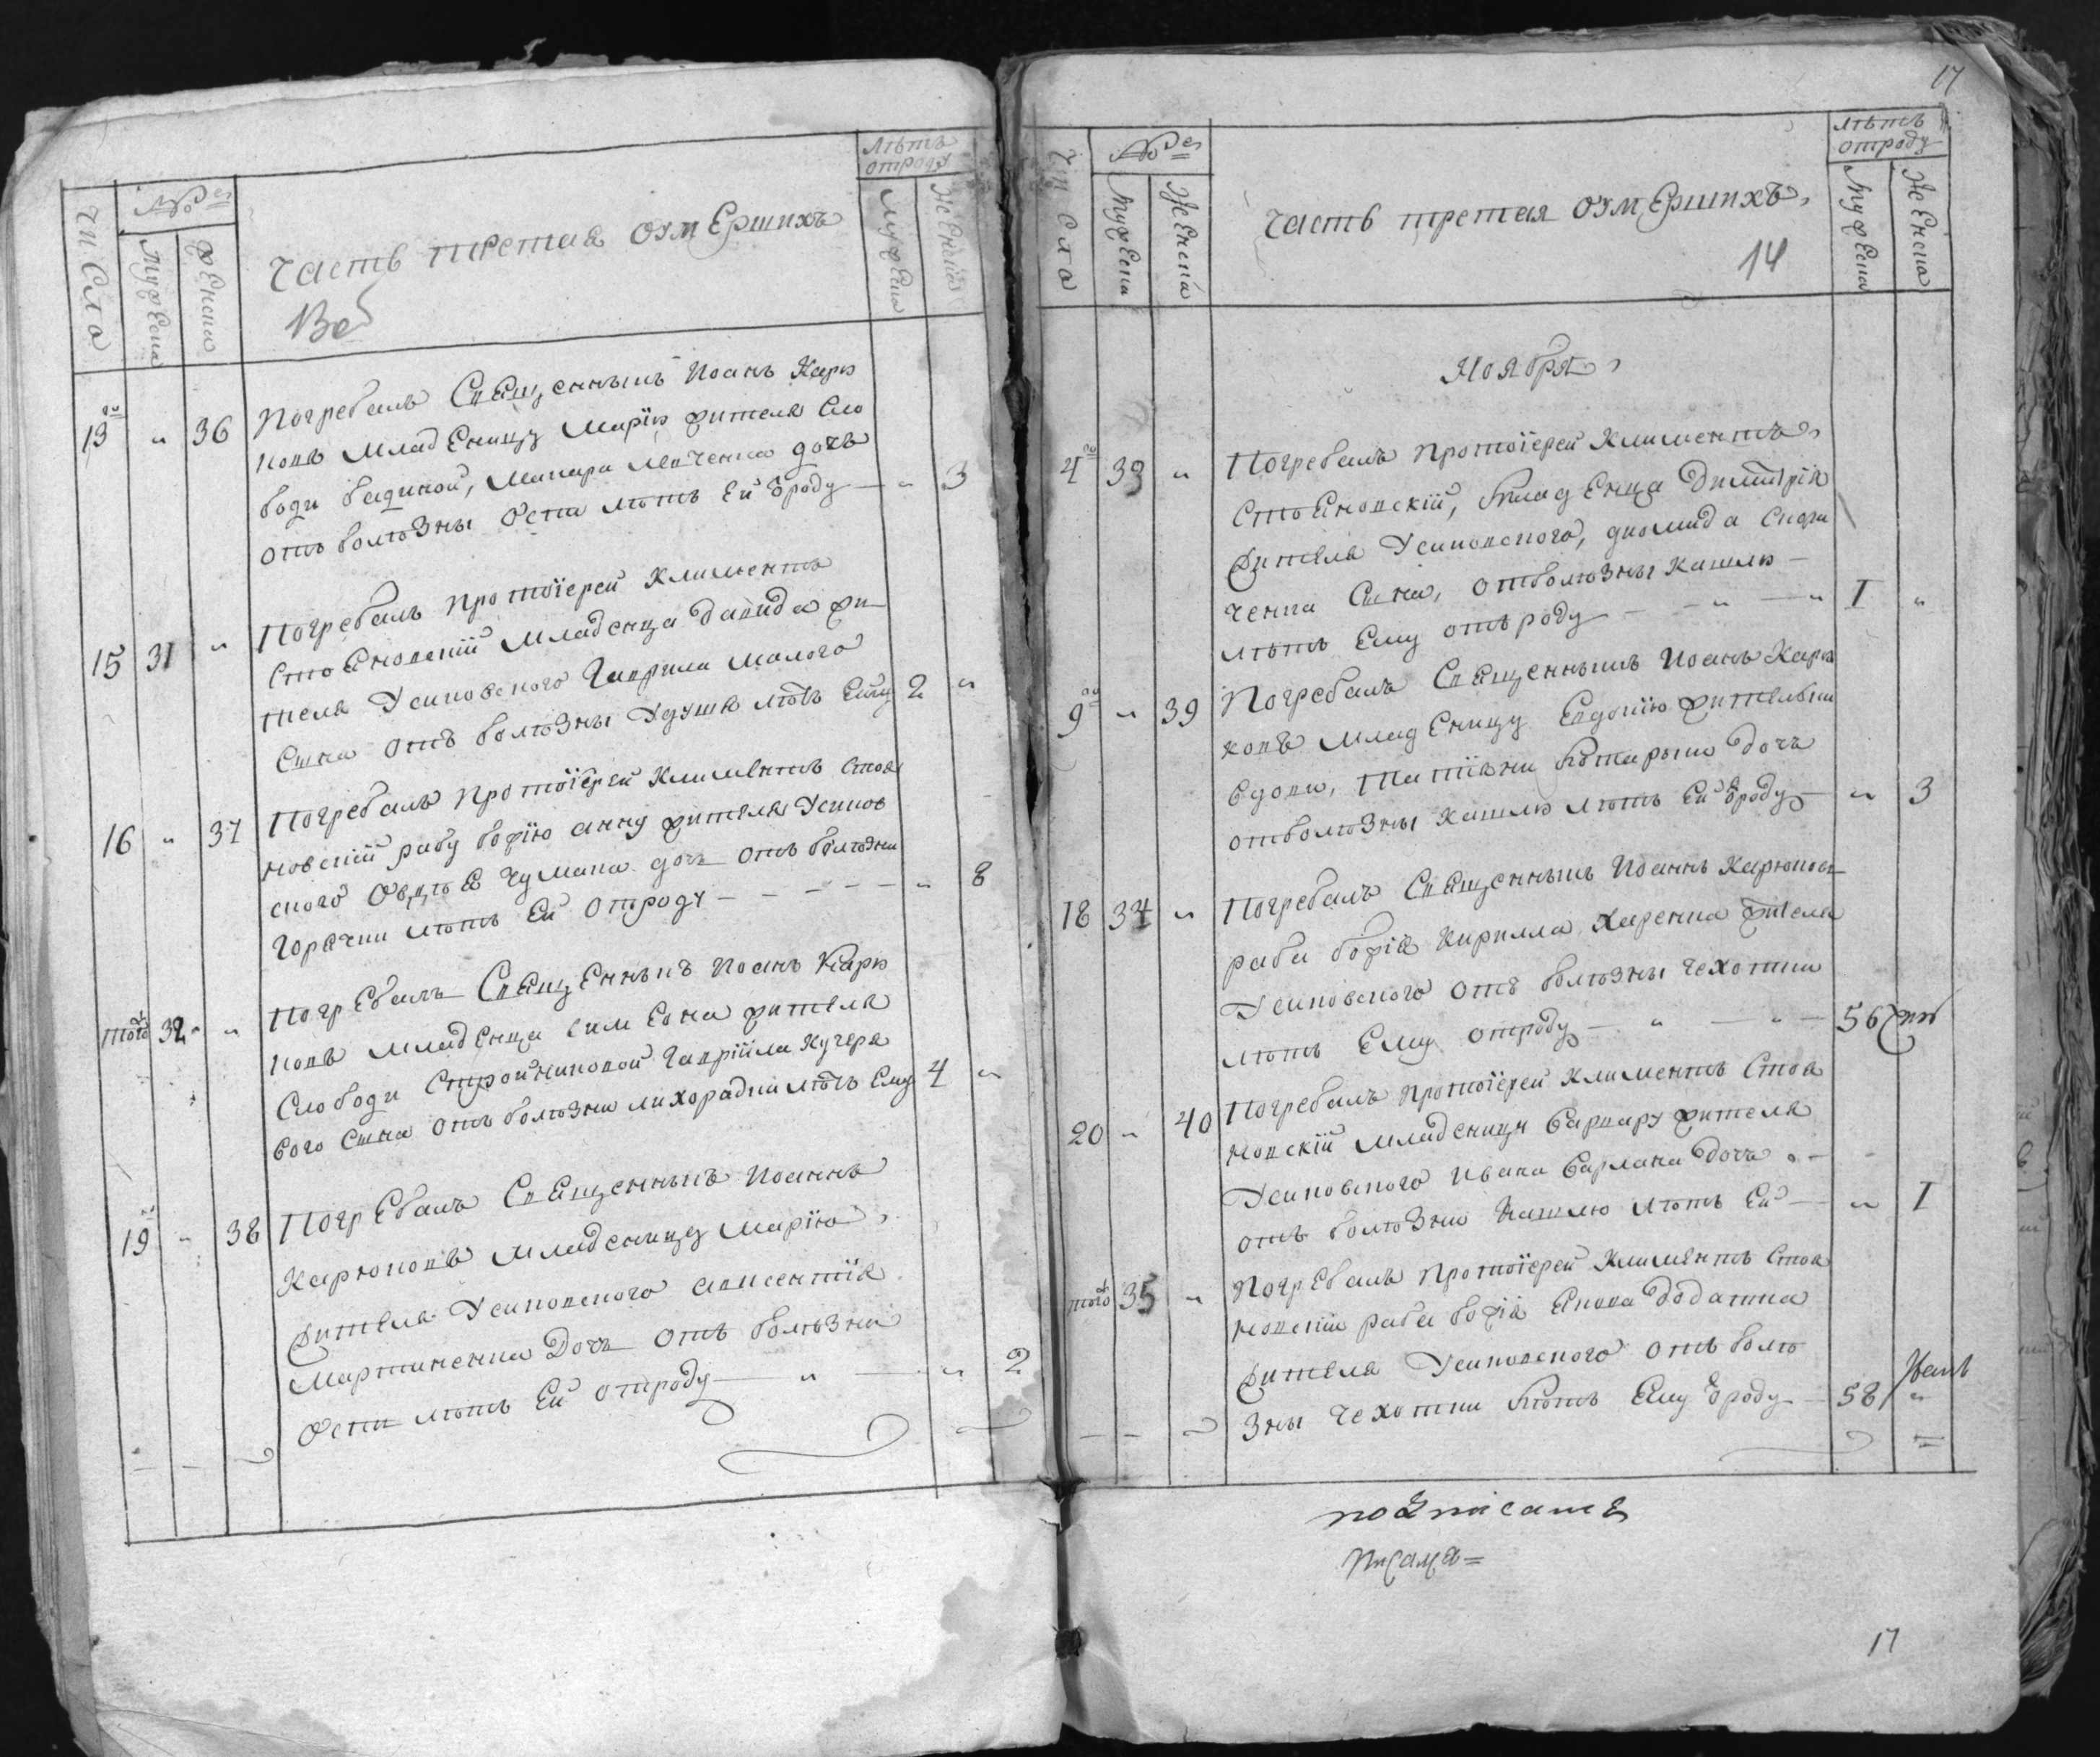 Числа
№ рез
Мужеска
Женска
Часть третая оумершихъ
13 об
лѣтъ отроду
Мужеска
Женска
13го
"
36
Погребалъ Священникъ Иоанъ Карю
ковъ младеницу Марїю жителя Сло
боди
Макара
дочь
отъ болѣзны Оспи лѣтъ Ей ѿроду — " 3
15 31 "
Погребалъ протоїерей Климентъ
Стояновскїй младенца Давида жи
теля Усиковского Гаврила Малого
Сына отъ болѣзны Удушя лѣтъ Ему 2 "
16 " 37
Погребалъ протоїерей Климентъ Стоя
новскїй рабу божїю анну жителя Усиков
ского Овдѣя Чумака дочь отъ болѣзни
горячки лѣтъ Ей отроду — — — — " 8
тогож 32 "
Погребалъ Священникъ Иоанъ Карю
ковъ младенца Симеона жителя
Слободи Стройниковой Гаврїила Кучеря
вого Сына отъ болѣзни лихорадки лѣтъ Ему 4 "
19го " 38
Погребалъ Священникъ Иоаннъ
Карюковъ младеницу Марїю
жителя Усиковского авксентїя
Мартиненка Дочь отъ болѣзни
Оспи лѣтъ Ей отроду — " — " 2
17
Числа
№ рез
Мужеска
Женска
Часть третая оумершихъ
14
лѣтъ отроду
Мужеска
Женска
Ноября
4го 33 "
Погребалъ протоїерей Климентъ
Стояновскїй, младенца Димитрїя
жителя Усиковского, диомида
ченка Сына, отболѣзны Кашлю —
лѣтъ Ему отъ роду — — " — " 1 "
9го " 39
Погребалъ Священникъ Иоанъ Карю
ковъ младеницу Евдокїю жителки
вдови, Татїяни дочь
отболѣзны Кашлю лѣтъ Ей ѿроду — " 3
18 34 "
Погребалъ Священникъ Иоаннъ Карюковъ
раба божїя Кирилла Харенка жителя
Усиковского отъ болѣзны чехотки
лѣтъ Ему отроду — " — " — 56
20 " 40
Погребалъ протоїерей Климентъ Стоя
новскїй младеницу Варвару жителя
Усиковского Ивана Варлана Дочь —
отъ болѣзни Кашлю лѣтъ Ей — " 1
тогож 35 "
Погребалъ протоїерей Климентъ Стоя
новскїй раба божїя Якова Додатка
жителя Усиковского отъ болѣ
зны чехотки лѣтъ Ему ѿроду — 58 "
17